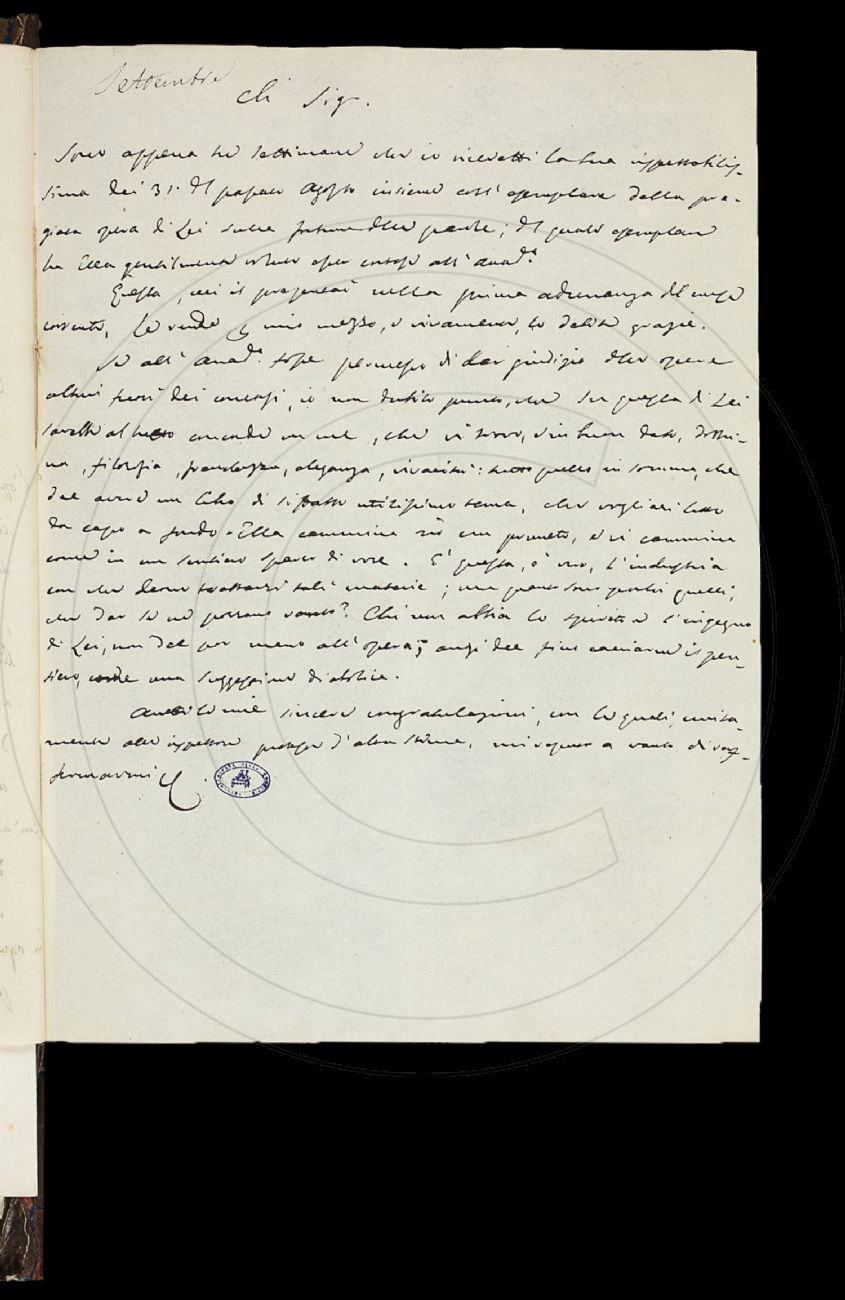 Settembre
Ch. Sig.
Sono appena tre settimane che io ricevetti la sua rispettabilis-
sima dei 31. del passato Agosto insieme coll' esemplare della pre-
giata opera di Lei sulla fortuna delle parole; del quale esemplare
ha Ella gentilmente voluto esser cortese all' Accad.a
Questa, cui il presentai nella prima adunanza del mese
corrente, Le rende mio mezzo, e vivamente, le debite grazie.
Se all' Accad.a fosse permesso di dar giudizio delle opere
altrui fuori dei concorsi, io non dubito punto, che su questa di Lei
sarebbe al tutto concorde in me, che vi trovo, e in buon dato, dottri-
na, filosofia, franchezza, eleganza, vivacità: tutto quello in somma, che
dee avere un libro di sì fatto utilissimo tema, che voglia esser letto
da capo a fondo. Ella cammina un pruneto, e vi cammina
come in un sentiero sparso di rose. E' questa, è vero, l'industria
con che denno trattarsi tali materie; ma quanti sono quelli,
che dar se ne possano vanto? Chi non abbia lo spirito e l'ingegno
di Lei, non del por mano all' opera; anzi dee fin cacciarne il pen-
siero, come una suggestione diabolica.
Accetti le mie sincere congratulazioni, con le quali, unita-
mente alle rispettose proteste d'alta stima, mi reputo a vanto di raf-
fermarmi